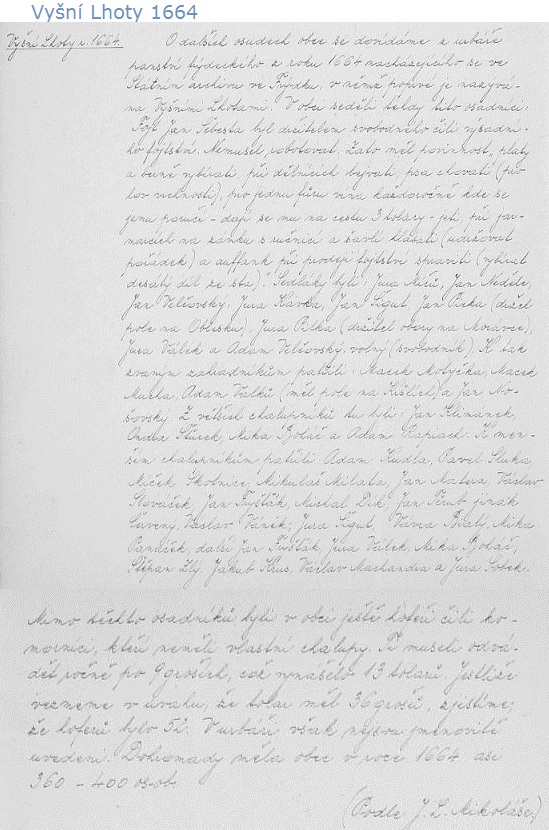 Vyšní Lhoty 1664
Vyšní Lhoty r. 1664.
O dalších osudech obce se dovídáme z urbáře
panství frýdeckého z roku 1664 nacházejícího se ve
Státním archivu ve Frýdku, v němž poprvé je nazývá-
na Vyšními Lhotami. V obci seděli tehdy tito osadníci:
Fojt Jan Šebesta byl držitelem svobodného čili výsadní-
ho fojtství. Nemusel robotovat. Zato měl povinnost „platy
a berně vybírati, při dělnících bývati, psa chovati (pro
lov vrchnosti), pro jednu fůru vína každoročně kde se
jemu poručí – dají se mu na cestu 3 tolary – jeti při jar-
marcích na zámku s ručnicí a šavlí hlásati (udržovat
pořádek) a auffank při prodeji fojtství spraviti (vybírat
desátý díl ze sta)." Sedláky byli: Jura Mičů, Jan Neděle,
Jan Velčovský, Jura Kavka, Jan Šigut, Jan (držel
pole na Oblesku), Jura Bilka (držitel obory na Morávce),
Jura Válek a Adam Velčovský, volný (svobodník). K tak
zvaným zahradníkům patřili: Macek Motyčka, Macek
Mucha, Adam Valků (měl pole na ) a Jan No-
šovský. Z větších chalupníků tu byli: Jan Klimánek,
Ondra Stucek, Mika Boláč a Adam . K men-
ším chalupníkům patřili Adam Kudla, Pavel Sluka
Míček Skotnice, Mikuláš Milata, Jan Matera, Václav
Slováček, Jan Fušťák, Michal Dik, Jan jinak
Červený, Václav Vaněk, Jura Šigut, Vávra Bialý, Mika
Panáček, další Jan Fušťák, Jura Válek, Mika Boláč,
Štěpán Zlý, Jakub Krus, Václav Machandra a Jura Sobek.
Mimo těchto osadníků byli v obci ještě hoteři čili ko-
morníci, kteří neměli vlastní chalupy. Ti museli odvá-
dět ročně po 9 groších, což vynášelo 13 tolarů. Jestliže
vezmeme v úvahu, že tolar měl 36 grošů, zjistíme,
že hoterů bylo 52. V urbáři však nejsou jmenovitě
uvedeni. Dohromady měla obec v roce 1664 asi
360 – 400 osob.
(Podle J. L. Mikoláše.)